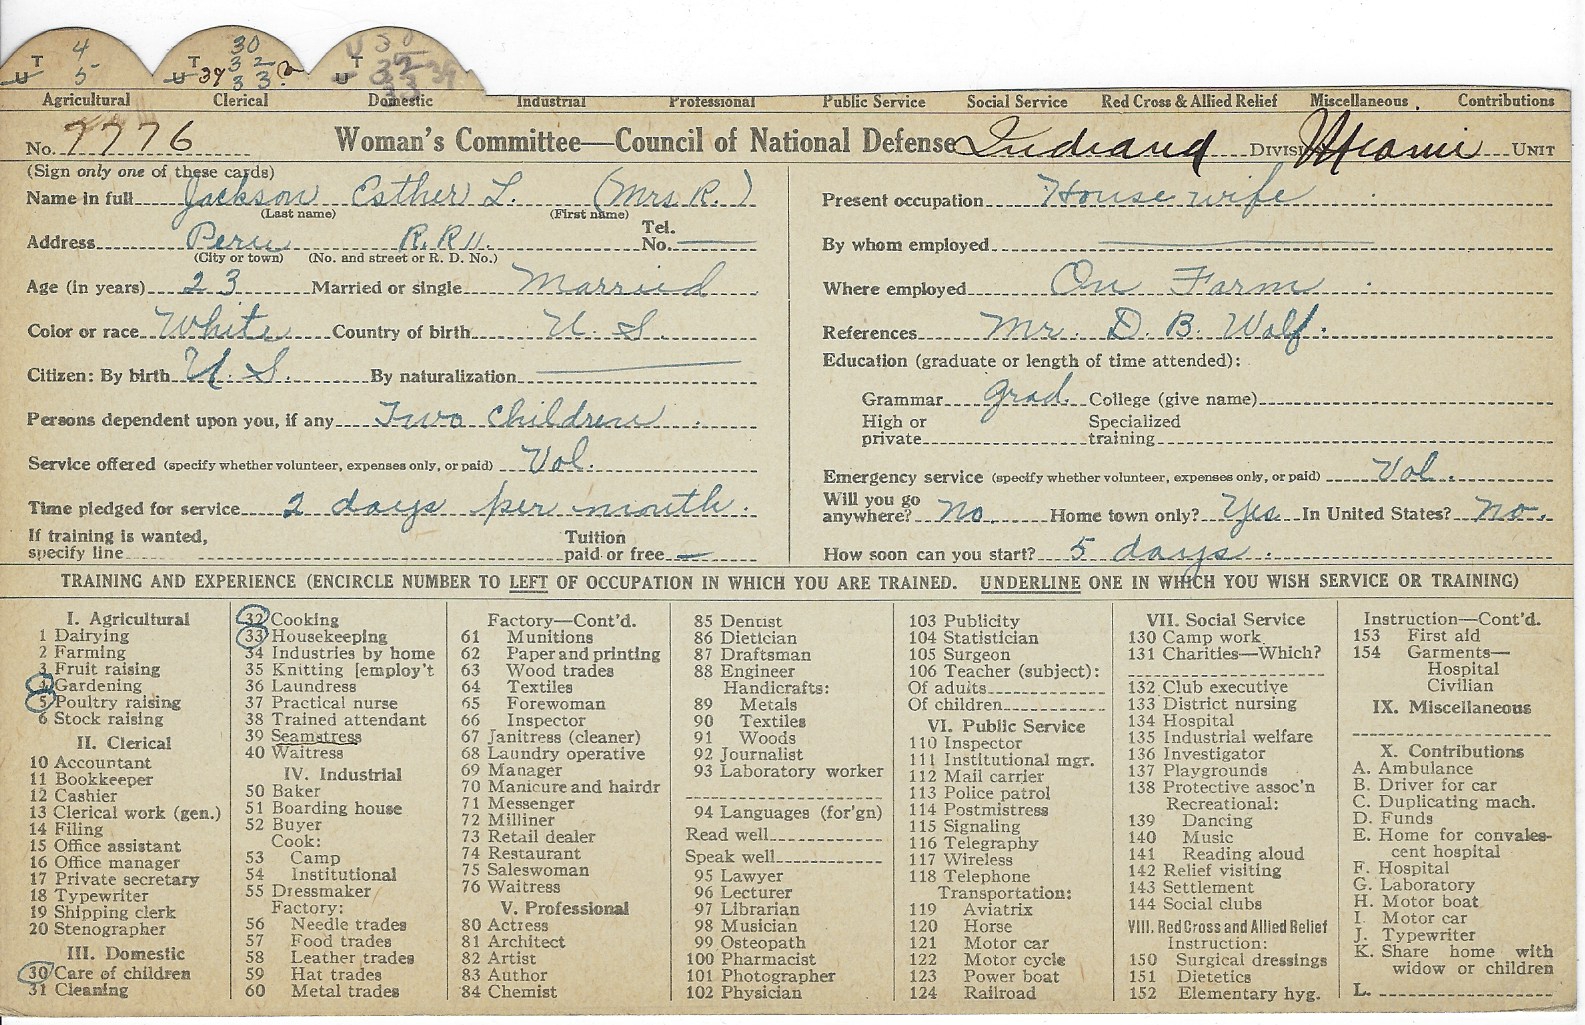 T 4 T 30 U 30
U 5 U 39 32 T 32 39
33 U 33
Agricultural Clerical Domestic Industrial Professional Public Service Social Service Red Cross & Allied Relief Miscellaneous Contributions
No. 7776 Woman's Committee—Council of National Defense Indiana Division Miami Unit
(Sign only one of these cards)
Name in full Jackson Esther L. (Mrs R.) Present occupation House wife
(Last name) (First name)
Address Peru R.R 11. Tel. No. By whom employed
(City or town) (No. and street or R. D. No.)
Age (in years) 23 Married or single Married Where employed On Farm
Color or race White Country of birth U. S. References Mr. D. B. Wolf.
Education (graduate or length of time attended):
Citizen: By birth U. S. By naturalization
Grammar grad. College (give name)
Persons dependent upon you, if any Two children
High or private Specialized training
Service offered (specify whether volunteer, expenses only, or paid) Vol.
Emergency service (specify whether volunteer, expenses only, or paid) Vol.
Time pledged for service 2 days per month. Will you go anywhere? No. Home town only? Yes In United States? No.
If training is wanted, specify line Tuition paid or free How soon can you start? 5 days.
TRAINING AND EXPERIENCE (ENCIRCLE NUMBER TO LEFT OF OCCUPATION IN WHICH YOU ARE TRAINED. UNDERLINE ONE IN WHICH YOU WISH SERVICE OR TRAINING)
I. Agricultural
1 Dairying
2 Farming
3 Fruit raising
4 Gardening
5 Poultry raising
6 Stock raising
II. Clerical
10 Accountant
11 Bookkeeper
12 Cashier
13 Clerical work (gen.)
14 Filing
15 Office assistant
16 Office manager
17 Private secretary
18 Typewriter
19 Shipping clerk
20 Stenographer
III. Domestic
30 Care of children
31 Cleaning
32 Cooking
33 Housekeeping
34 Industries by home
35 Knitting [employ't
36 Laundress
37 Practical nurse
38 Trained attendant
39 Seamstress
40 Waitress
IV. Industrial
50 Baker
51 Boarding house
52 Buyer
Cook:
53 Camp
54 Institutional
55 Dressmaker
Factory:
56 Needle trades
57 Food trades
58 Leather trades
59 Hat trades
60 Metal trades
Factory—Cont'd.
61 Munitions
62 Paper and printing
63 Wood trades
64 Textiles
65 Forewoman
66 Inspector
67 Janitress (cleaner)
68 Laundry operative
69 Manager
70 Manicure and hairdr
71 Messenger
72 Milliner
73 Retail dealer
74 Restaurant
75 Saleswoman
76 Waitress
V. Professional
80 Actress
81 Architect
82 Artist
83 Author
84 Chemist
85 Dentist
86 Dietician
87 Draftsman
88 Engineer
Handicrafts:
89 Metals
90 Textiles
91 Woods
92 Journalist
93 Laboratory worker
94 Languages (for'gn)
Read well
Speak well
95 Lawyer
96 Lecturer
97 Librarian
98 Musician
99 Osteopath
100 Pharmacist
101 Photographer
102 Physician
103 Publicity
104 Statistician
105 Surgeon
106 Teacher (subject):
Of adults
Of children
VI. Public Service
110 Inspector
111 Institutional mgr.
112 Mail carrier
113 Police patrol
114 Postmistress
115 Signaling
116 Telegraphy
117 Wireless
118 Telephone
Transportation:
119 Aviatrix
120 Horse
121 Motor car
122 Motor cycle
123 Power boat
124 Railroad
VII. Social Service
130 Camp work
131 Charities—Which?
132 Club executive
133 District nursing
134 Hospital
135 Industrial welfare
136 Investigator
137 Playgrounds
138 Protective assoc'n
Recreational:
139 Dancing
140 Music
141 Reading aloud
142 Relief visiting
143 Settlement
144 Social clubs
VIII. Red Cross and Allied Relief
Instruction:
150 Surgical dressings
151 Dietetics
152 Elementary hyg.
Instruction—Cont'd.
153 First aid
154 Garments—
Hospital
Civilian
IX. Miscellaneous
X. Contributions
A. Ambulance
B. Driver for car
C. Duplicating mach.
D. Funds
E. Home for convales-
cent hospital
F. Hospital
G. Laboratory
H. Motor boat
I. Motor car
J. Typewriter
K. Share home with
widow or children
L.